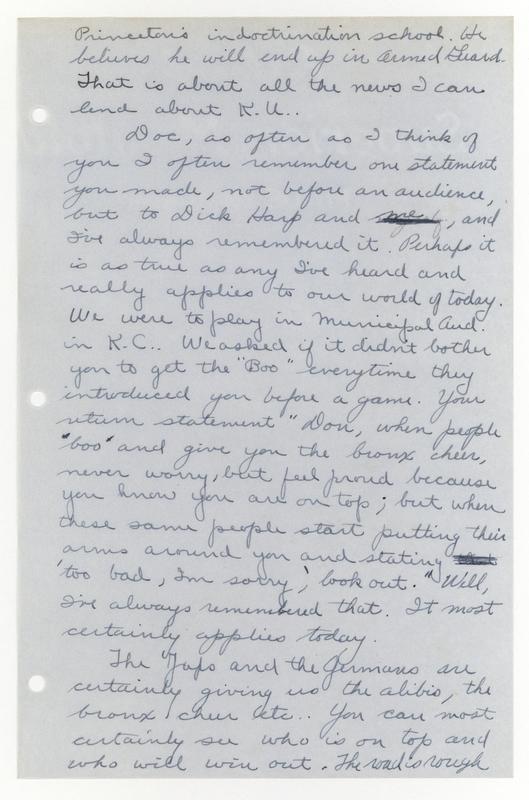 Princeton's indoctrination school. He
believes he will end up in Armed Guard.
That is about all the news I can
lend about K.U..
Doc, as often as I think of
you I often remember one statement
you made, not before an audience,
but to Dick Harp and me, and
I've always remembered it. Perhaps it
is as true as any I've heard and
really applies to our world of today.
We were to play in Municipal Aud.
in K.C.. We asked if it didn't bother
you to get the "Boo" everytime they
introduced you before a game. Your
return statement "Don, when people
"boo" and give you the bronx cheer,
never worry, but feel proud because
you know you are on top; but when
these same people start putting their
arms around you and stating
'too bad, I'm sorry', look out." Well,
I've always remembered that. It most
certainly applies today.
The Japs and the Germans are
certainly giving us the alibis, the
bronx cheer etc.. You can most
certainly see who is on top and
who will win out. The road is rough